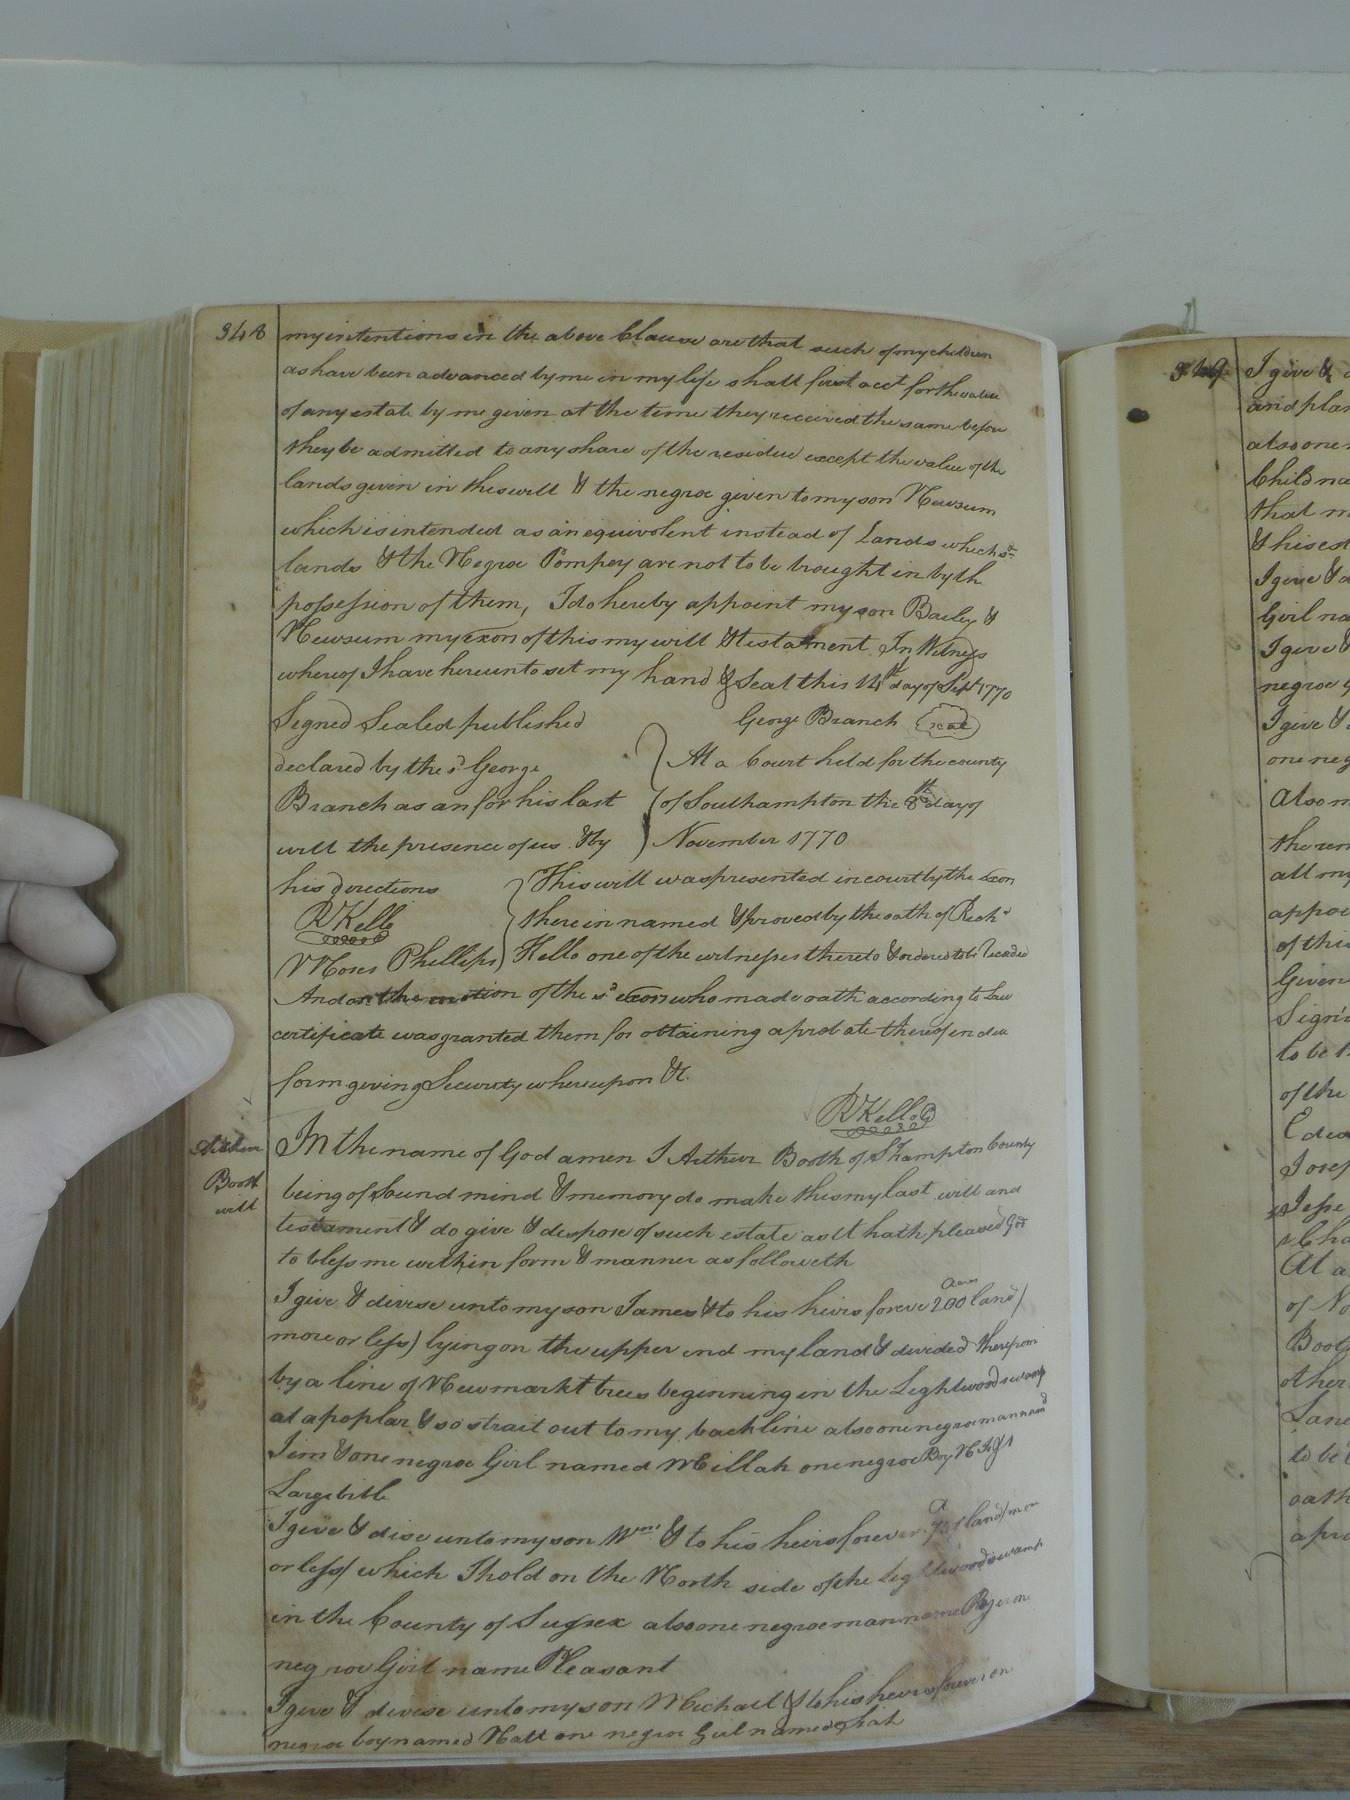 348
my intentions in the above Clause are that such of my children
as have been advanced by me in my life shall first acct for the value
of any estate by me given at the time they received the same before
they be admitted to any share of the residue except the value of the
lands given in this will & the negroe given to my son Newsum
which is intended as an equivolent instead of Lands which sd
lands & the Negroe Pompey are not to be brought in by th
possession of them, I do hereby appoint my son Bailey &
Newsum my exors of this my will & testament In Witness
whereof I have hereunto set my hand & Seal this 14th day of Sept 1770
Signed Sealed published
George Branch seal
declared by the sd George
Branch as an for his last
will the presence of us & by
his directions
RKello
Moses Phillips
At a Court held for the county
of Southampton the 8th day of
November 1770
This will was presented in court by the exors
therein named & proved by the oath of Richd
Kello one of the witnesses thereto & ordered to be Recorded
And on the motion of the sd exors who made oath according to Law
certificate was granted them for obtaining a probate thereof in due
form giving Security whereupon &c.
RKello
Arthur
Booth
will
In the name of God amen I Arthur Booth of Shampton County
being of Sound mind & memory do make this my last will and
testament & do give & despose of such estate as it hath pleased God
to bless me with in form & manner as followeth
I give & divise unto my son James & to his heirs forever 200 acres land (
more or less) lying on the upper end my land & divided therefrom
by a line of New markt trees beginning in the Lightwood swamp
at a poplar & so strait out to my back line also one negroe man named
Jim & one negroe Girl named Millah one negroe Boy &
Large bible
I give & dise unto my son Wm & to his heirs forever land (more
or less) which I hold on the North side of the Lightwood swamp
in the County of Sussex also one negroe man name one
negroe Girl name Pleasant
I give & devise unto my son Michael & to his heirs forever on
negroe boy named Natt one negroe Girl named
349
I give &
and plan
also one
Child na
that m
& his est
I give & d
Girl na
I give &
negroe g
I give &
one neg
Also m
the rem
all my
appoi
of this
Given
Sign'd
to be h
of the
Edw
Josep
Jesse
Cha
At a
of No
Boot
ther
Land
to be
oath
apro